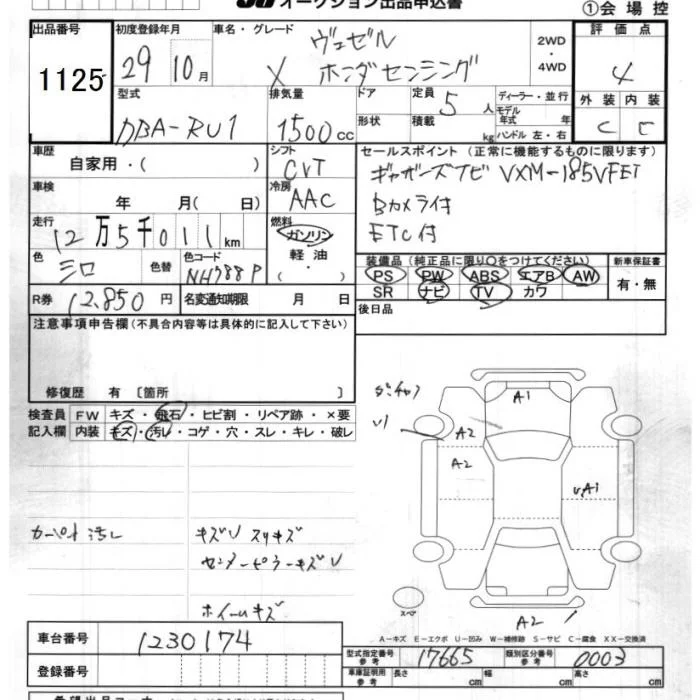 オークション出品申込書 ①会場控
出品番号 初度登録年月 車名・グレード 評価点
1125 29年10月 ヴェゼル 2WD・4WD 4
X ホンダセンシング
型式 排気量 ドア 定員 ディーラー・並行 外装 内装
DBA-RU1 1500cc 5人 モデル年式 年 C C
形状 積載 kg ハンドル 左・右
車歴 シフト セールスポイント (正常に機能するものに限ります)
自家用・( ) CVT ギャザーズナビ VXM-185VFEi
車検 冷房
年 月( 日) AAC Bカメラ付
走行 燃料
12万5千011km ガソリン ETC付
色 色替 色コード 軽油・( ) 装備品(純正品に限り○をつけてください) 新車保証書
シロ NH788P PS PW ABS エアB AW 有・無
SR ナビ TV カワ
R券 12,850円 名変通知期限 月 日 後日品
注意事項申告欄(不具合内容等は具体的に記入して下さい)
修復歴 有 〔箇所 〕
検査員 FW キズ・飛石・ヒビ割・リペア跡・×要
記入欄 内装 キズ・汚レ・コゲ・穴・スレ・キレ・破レ
A1
A2
A2
A1
カーペット汚レ キズU スリキズ
センターピラーキズU
ホイールキズ
スペア
A2
A−キズ E−エクボ U−凹み W−補修跡 S−サビ C−腐食 XX−交換済
車台番号 1230174
型式指定番号 参考 17665 類別区分番号 参考 0003
登録番号 車庫証明用 参考 長さ cm 幅 cm 高さ cm
希望出品コーナー